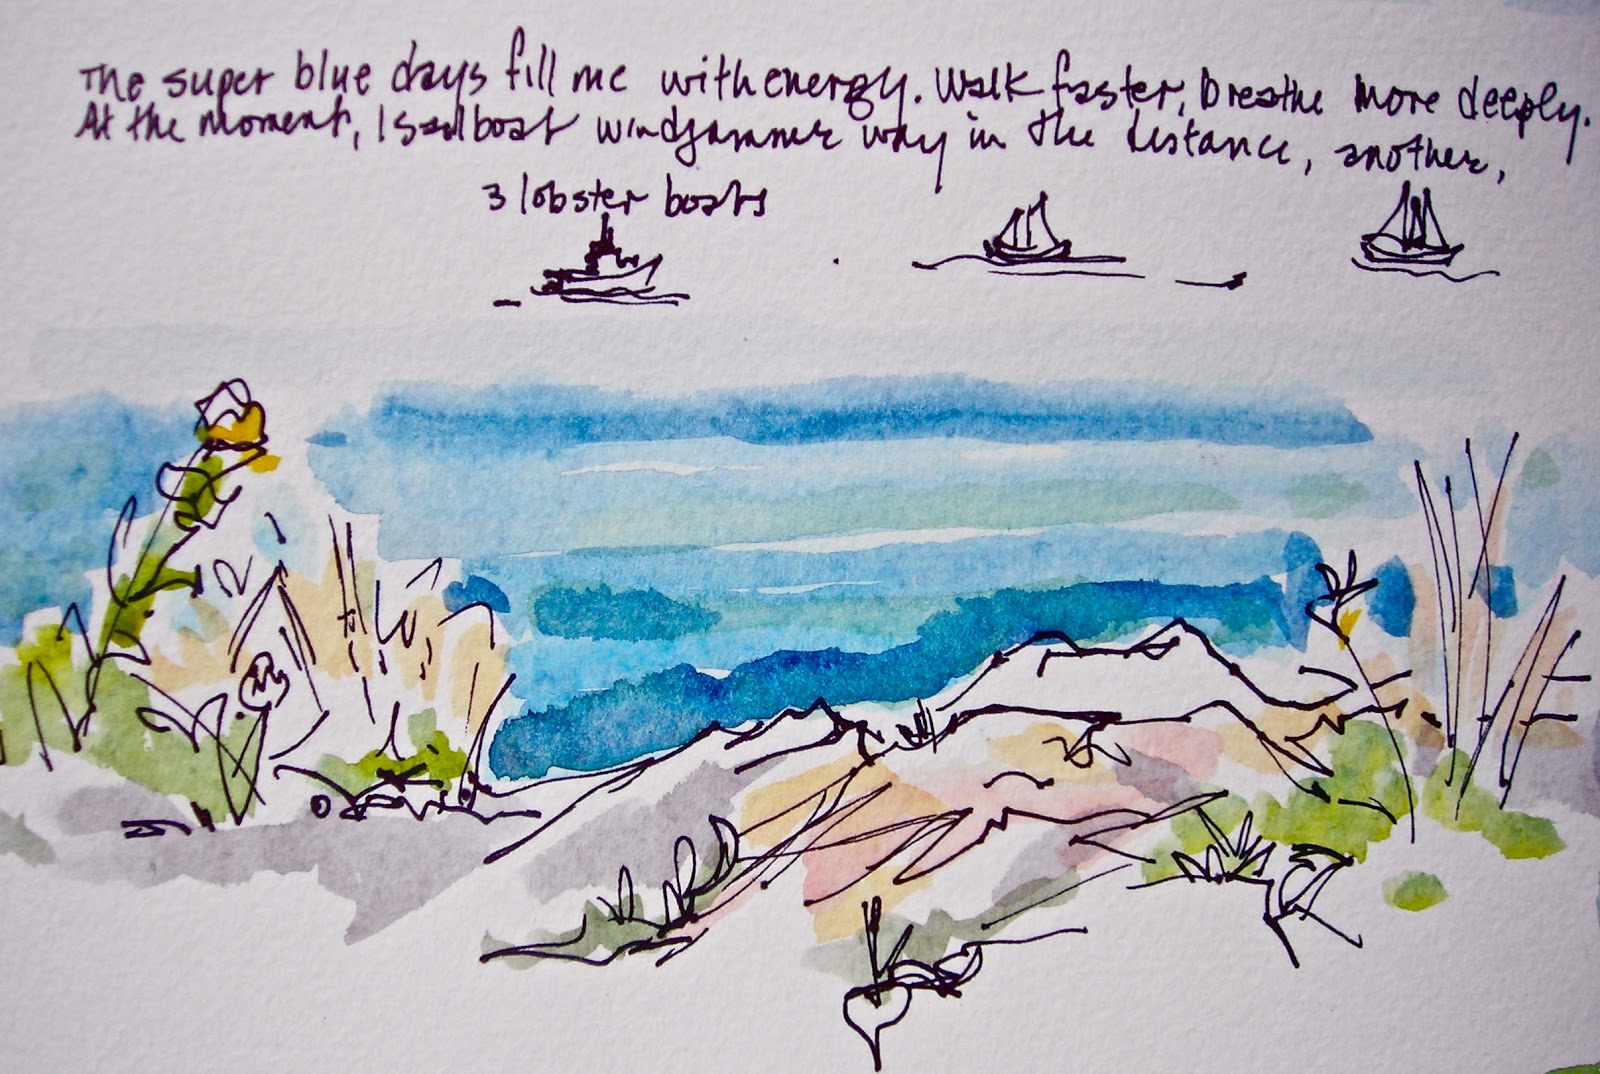 The super blue days fill me with energy. Walk faster, breathe more deeply.
At the moment, 1 sailboat windjammer way in the distance, another,
3 lobster boats